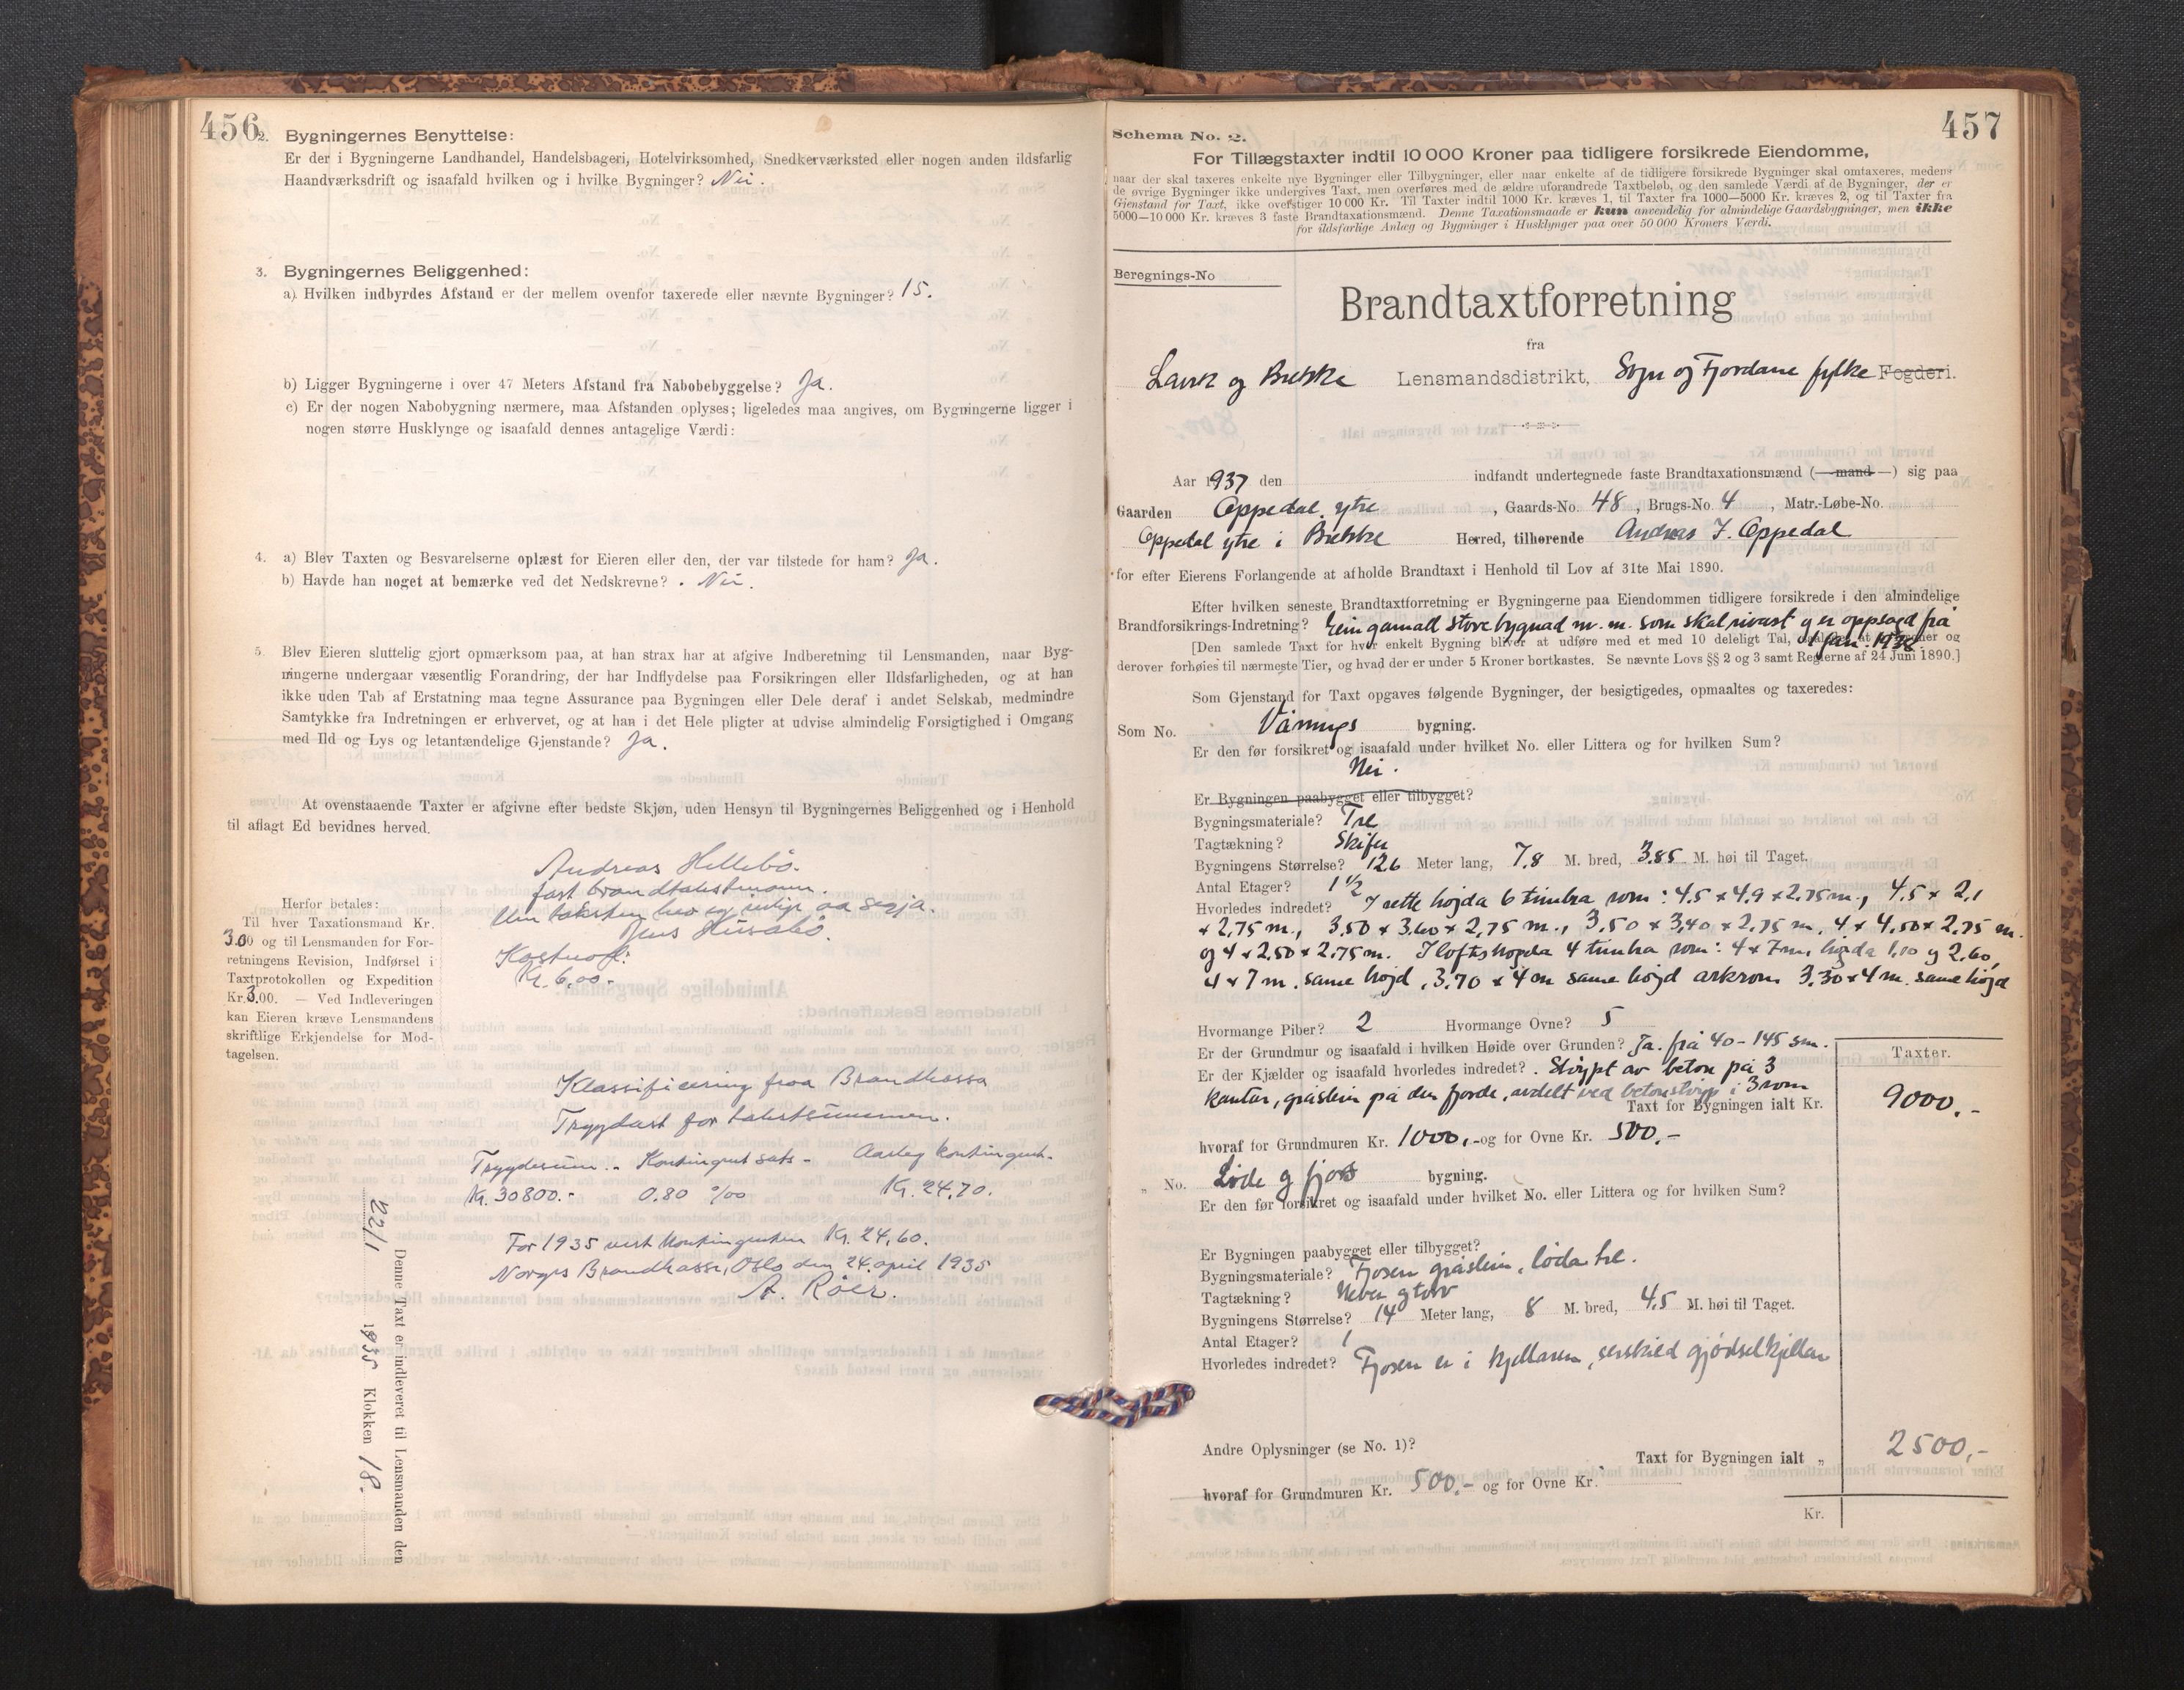 456
2. Bygningernes Benyttelse:
Er der i Bygningerne Landhandel, Handelsbageri, Hotelvirksomhed, Snedkerværksted eller nogen anden ildsfarlig
Haandværksdrift og isaafald hvilken og i hvilke Bygninger? Nei.
3. Bygningernes Beliggenhed:
a) Hvilken indbyrdes Afstand er der mellem ovenfor taxerede eller nævnte Bygninger? 15.
b) Ligger Bygningerne i over 47 Meters Afstand fra Nabobebyggelse? Ja.
c) Er der nogen Nabobygning nærmere, maa Afstanden oplyses; ligeledes maa angives, om Bygningerne ligger i
nogen større Husklynge og isaafald dennes antagelige Værdi:
4. a) Blev Taxten og Besvarelserne oplæst for Eieren eller den, der var tilstede for ham? Ja.
b) Havde han noget at bemærke ved det Nedskrevne? . Nei.
5. Blev Eieren sluttelig gjort opmærksom paa, at han strax har at afgive Indberetning til Lensmanden, naar Byg-
ningerne undergaar væsentlig Forandring, der har Indflydelse paa Forsikringen eller Ildsfarligheden, og at han
ikke uden Tab af Erstatning maa tegne Assurance paa Bygningen eller Dele deraf i andet Selskab, medmindre
Samtykke fra Indretningen er erhvervet, og at han i det Hele pligter at udvise almindelig Forsigtighed i Omgang
med Ild og Lys og letantændelige Gjenstande? Ja.
At ovenstaaende Taxter er afgivne efter bedste Skjøn, uden Hensyn til Bygningernes Beliggenhed og i Henhold
til aflagt Ed bevidnes herved.
Andreas Hellebø.
fast brandtakstmann.
Um taksten hev eg inkje aa segja.
Jens Husabø.
Kostnad:
Kr. 6,00.-
Herfor betales:
Til hver Taxationsmand Kr.
3.00 og til Lensmanden for For-
retningens Revision, Indførsel i
Taxtprotokollen og Expedition
Kr. 3.00. — Ved Indleveringen
kan Eieren kræve Lensmandens
skriftlige Erkjendelse for Mod-
tagelsen.
Klassificering fraa Brandkassa
Trygdast for takstsummen.
Trygdesum.- Kontingentsats - Aarleg kontingent.
Kr. 30800.- 0.80 ‰ Kr. 24,70.
For 1935 vert kontingenten Kr. 24,60.
Norges Brandkasse, Oslo den 24. april 1935
A. Röer.
Denne Taxt er indleveret til Lensmanden den
22/1 1935 Klokken 18.
457
Schema No. 2.
For Tillægstaxter indtil 10 000 Kroner paa tidligere forsikrede Eiendomme,
naar der skal taxeres enkelte nye Bygninger eller Tilbygninger, eller naar enkelte af de tidligere forsikrede Bygninger skal omtaxeres, medens
de øvrige Bygninger ikke undergives Taxt, men overføres med de ældre uforandrede Taxtbeløb, og den samlede Værdi af de Bygninger, der er
Gjenstand for Taxt, ikke overstiger 10 000 Kr. Til Taxter indtil 1000 Kr. kræves 1, til Taxter fra 1000—5000 Kr. kræves 2, og til Taxter fra
5000—10 000 Kr. kræves 3 faste Brandtaxationsmænd. Denne Taxationsmaade er kun anvendelig for almindelige Gaardsbygninger, men ikke
for ildsfarlige Anlæg og Bygninger i Husklynger paa over 50 000 Kroners Værdi.
Beregnings-No
Brandtaxtforretning
fra
Lavik og Brekke Lensmandsdistrikt, Sogn og Fjordane fylke Fogderi.
Aar 1937 den indfandt undertegnede faste Brandtaxationsmænd (—mand—) sig paa
Gaarden Oppedal ytre, Gaards-No. 48, Brugs-No. 4, Matr.-Løbe-No.
Oppedal ytre i Brekke Herred, tilhørende Andreas J. Oppedal
for efter Eierens Forlangende at afholde Brandtaxt i Henhold til Lov af 31te Mai 1890.
Efter hvilken seneste Brandtaxtforretning er Bygningerne paa Eiendommen tidligere forsikrede i den almindelige
Brandforsikrings-Indretning? Ein gamall stovebygnad m.m. som skal rivast og er oppsagd frå
1 jan. 1938.
[Den samlede Taxt for hver enkelt Bygning bliver at udføre med et med 10 deleligt Tal, at og
derover forhøies til nærmeste Tier, og hvad der er under 5 Kroner bortkastes. Se nævnte Lovs §§ 2 og 3 samt Reglerne af 24 Juni 1890.]
Som Gjenstand for Taxt opgaves følgende Bygninger, der besigtigedes, opmaaltes og taxeredes:
Som No. Vånings bygning.
Er den før forsikret og isaafald under hvilket No. eller Littera og for hvilken Sum?
Nei.
Er Bygningen paabygget eller tilbygget?
Bygningsmateriale? Tre
Tagtækning? Skifer
Bygningens Størrelse? 12.6 Meter lang, 7.8 M. bred, 3.85 M. høi til Taget.
Antal Etager? 1 ½
Hvorledes indredet? I rette høgda 6 timbra rom: 4.5 x 4.9 x 2.75 m., 4.5 x 2,1
x 2,75 m., 3.50 x 3.60 x 2,75 m., 3.50 x 3,40 x 2,75 m. 4 x 4,50 x 2.75 m.
og 4 x 2.50 x 2.75 m. I loftshøgda 4 timbra rom: 4 x 7 m, høgda 1,10 og 2,60,
4 x 7 m. same høgd, 3.70 x 4 m same høgd arkrom 3.30 x 4 m. same høgd
Hvormange Piber? 2 Hvormange Ovne? 5
Er der Grundmur og isaafald i hvilken Høide over Grunden? Ja. frå 40 - 145 sm.
Er der Kjælder og isaafald hvorledes indredet? . Støypt av beton på 3
kantar, gråstein på den fjorde, avdelt ved betonstøyp i 3 rom
Taxter.
Taxt for Bygningen ialt Kr. 9000.-
hvoraf for Grundmuren Kr. 1000.- og for Ovne Kr. 500.-
„ No. Løde og fjos bygning.
Er den før forsikret og isaafald under hvilket No. eller Littera og for hvilken Sum?
Er Bygningen paabygget eller tilbygget?
Bygningsmateriale? Fjosen gråstein, løda tre.
Tagtækning? Never og torv
Bygningens Størrelse? 14 Meter lang, 8 M. bred, 4.5 M. høi til Taget.
Antal Etager? 1
Hvorledes indredet? Fjosen er i kjellaren, serskild gjødselkjellar
Andre Oplysninger (se No. 1)?
Taxt for Bygningen ialt „ 2500,-
hvoraf for Grundmuren Kr. 500.- og for Ovne Kr.
Kr.